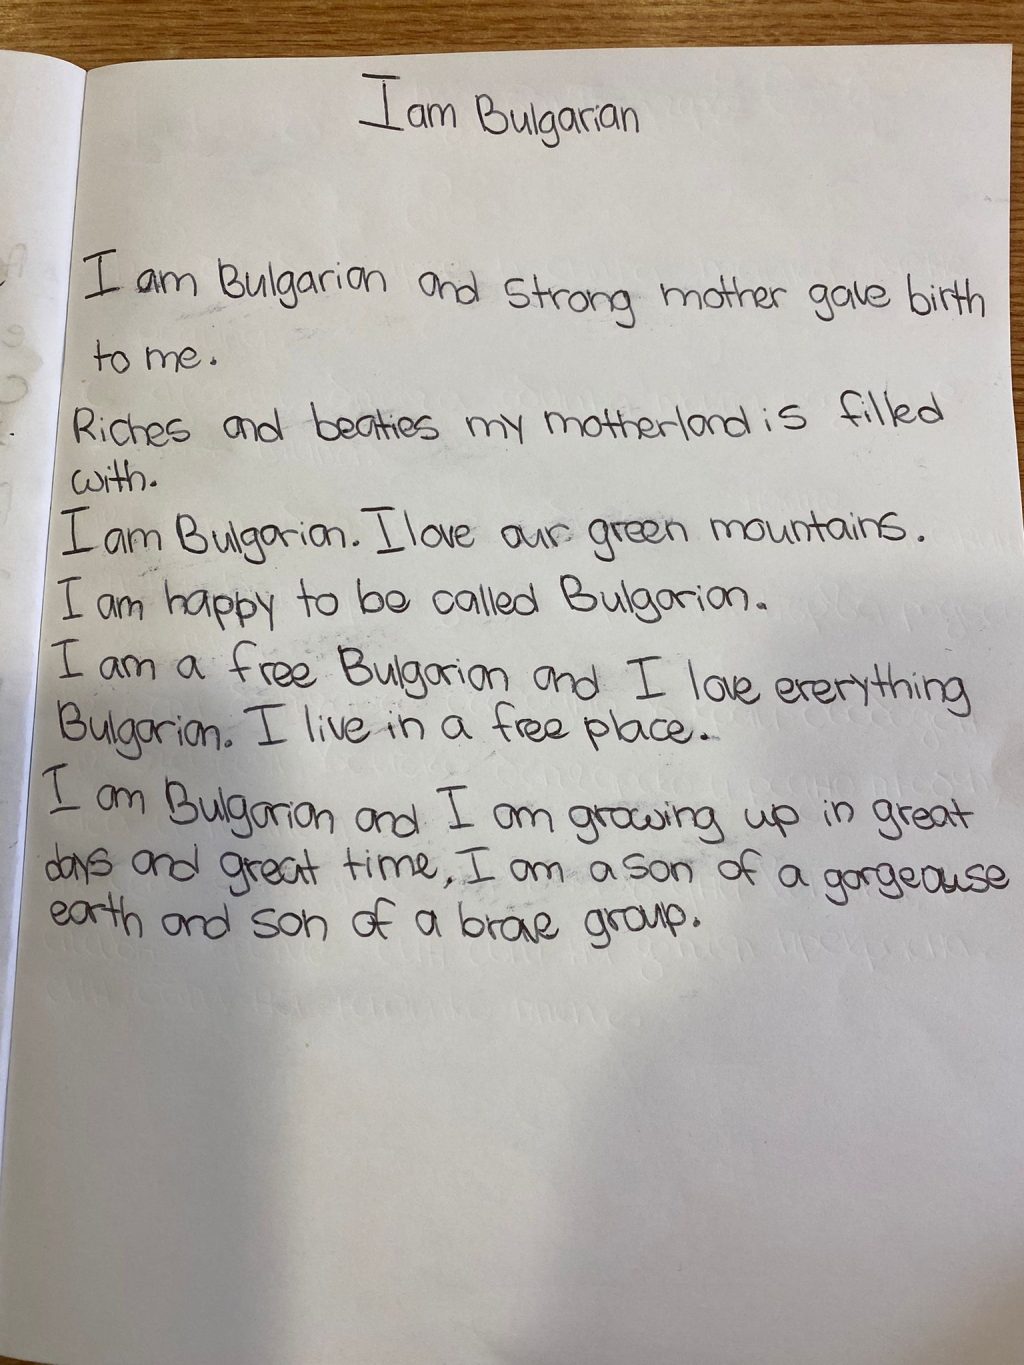 I am Bulgarian
I am Bulgarian and strong mother gave birth
to me.
Riches and beaties my motherland is filled
with.
I am Bulgarian. I love our green mountains.
I am happy to be called Bulgarian.
I am a free Bulgarian and I love ererything
Bulgarian. I live in a free place.
I am Bulgarian and I am growing up in great
days and great time, I am a son of a gorgeouse
earth and son of a brave group.